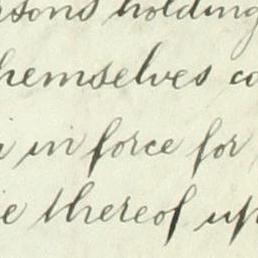 rsons holding
hemselves co
in force for
e thereof up